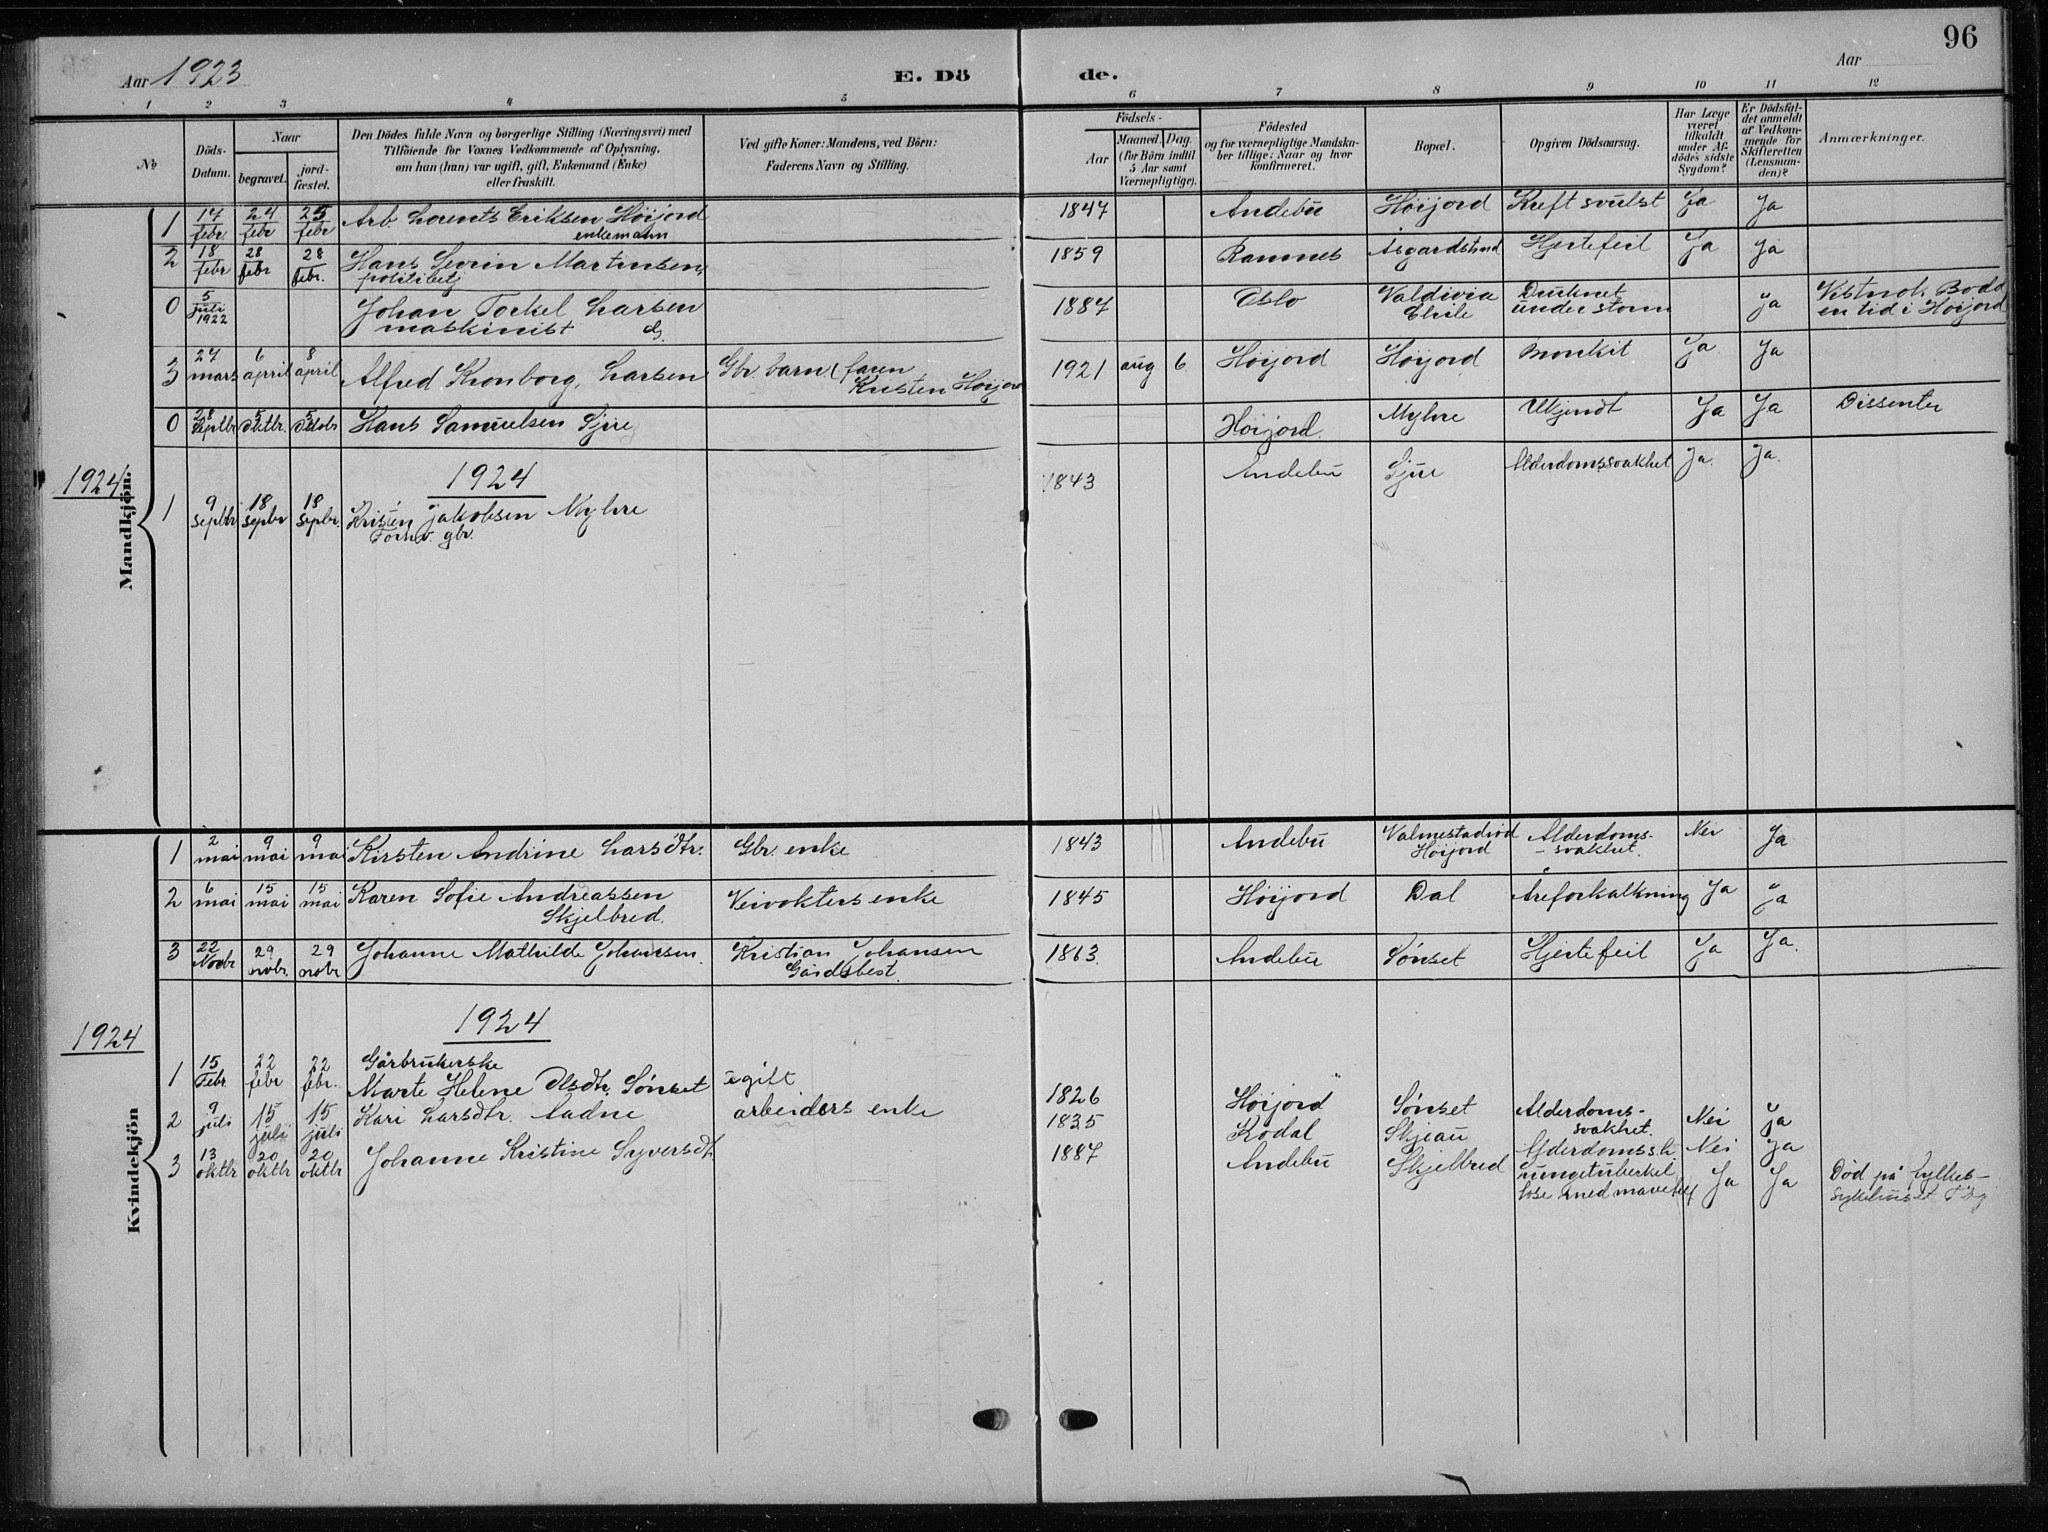 96
Aar 1923
E. Dö
de.
Aar
1 2 3 4 5 6 7 8 9 10 11 12
No
Döds-
Datum.
Naar
begravet.
jord-
fæstet.
Den Dödes fulde Navn og borgerlige Stilling (Næringsvei) med
Tilföiende for Voxnes Vedkommende af Oplysning,
om han (hun) var ugift, gift, Enkemand (Enke)
eller fraskilt.
Ved gifte Koner: Mandens, ved Börn:
Faderens Navn og Stilling.
Födsels-
Aar
Maaned. Dag.
(for Börn indtil
5 Aar samt
Værnepligtige).
Födested
og for værnepligtige Mandska-
ber tillige: Naar og hvor
konfirmeret.
Bopæl.
Opgiven Dödsaarsag.
Har Læge
været
tilkaldt
under Af-
dödes sidste
Sygdom?
Er Dödsfal-
det anmeldt
af Vedkom-
mende for
Skifteretten
(Lensman-
den)?
Anmærkninger.
Mandkjön.
1 17 febr. 24 febr 25 febr Arb. Lorents Eriksen Höijord 1847 Andebu Höijord Kreft svulst Ja Ja
enkemann
2 18 febr 28 febr 28 febr. Hans Sevrin Martinsen, 1859 Ramnes Åsgardstrand Hjertefeil Ja Ja
politibetj
0 5 juli 1922 Johan Torkel Larsen 1887 Oslo Valdivia Druknet ja Vistnok Bodd
maskinist Chile under storm en tid i Höijord
3 27 mars 6 april 8 april Alfred Kronborg, Larsen Gbr. barn (faren 1921 aug 6 Höijord Höijord Bronkit Ja Ja
Kristen Höijord
0 28 Septbr 5 Oktbr. 5 Oktobr Hans Samuelsen Sjue Höijord. Myhre Ukjendt Ja Ja Dissenter
1924
1924
1 9 septbr 18 sepbr 18 sepbr. Kristen Jakobsen Myhre 1843 Andebu Sjue Alderdomssvakhet Ja. Ja.
Forhv. gbr.
Kvindekjön
1 2 mai 9 mai 9 mai Kirsten Andrine Larsdtr. Gbr. enke 1843 Andebu Valmestadröd Alderdoms- Nei Ja
Höijord -svakhet.
2 6 mai 15 mai 15 mai Karen Sofie Andreassen Veivokters enke 1845 Höijord Dal Åreforkalkning Ja Ja
Skjelbred.
3 22 Novbr 29 novbr. 29 novbr Johanne Mathilde Johansen. Kristian Johansen 1863 Andebu Sönset Hjertefeil Ja Ja.
Gårdsbest.
1924
1924
Gårbrukerske
1 15 Febr 22 febr 22 febr. Marte Helene Olsdtr. Sönset ugift 1826 Höijord Sönset Alderdoms- Nei ja
svakhet.
2 9 juli 15 juli 15 juli Kari Larsdtr. Aadne arbeiders enke 1835 Kodal Skjeau Alderdomssk. Nei Ja
3 13 oktbr 20 oktbr 20 oktbr Johanne Kristine Syversdt. 1887 Andebu Skjelbred Lungetuberkel Ja Ja Död på fylkes-
lose med mavetbf sykehuset Tbg